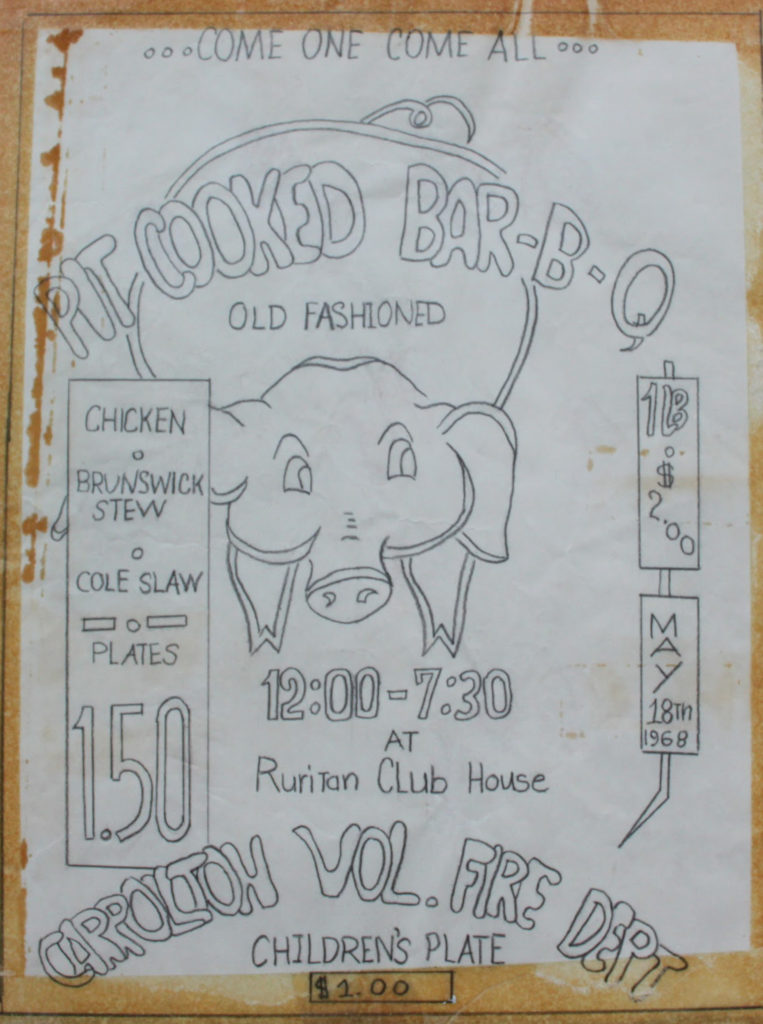 ...COME ONE COME ALL...
PIT COOKED BAR-B-Q
OLD FASHIONED
CHICKEN
BRUNSWICK
STEW
COLE SLAW
PLATES
1.50
1 LB
$
2.00
MAY
18TH
1968
12:00-7:30
AT
Ruritan Club House
CARROLLTON VOL. FIRE DEPT
CHILDREN'S PLATE
$1.00